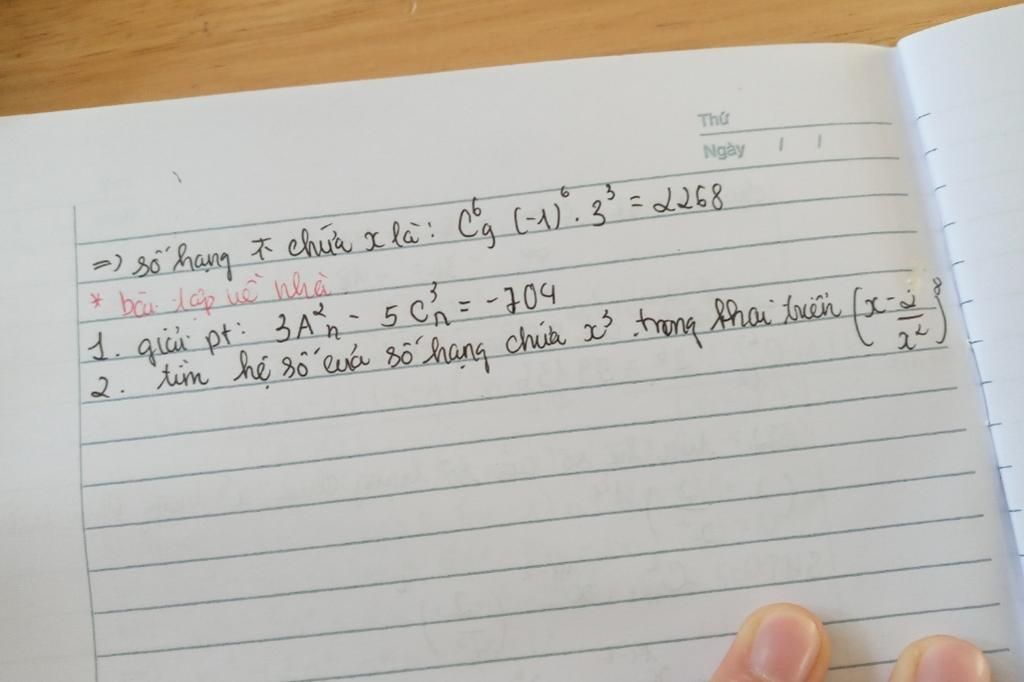 Thứ
Ngày / /
=> số hạng ko chứa x là: C⁶₉ (-1)⁶ . 3³ = 2268
* bài tập về nhà
1. giải pt: 3A²ₙ - 5C³ₙ = -704
2. tìm hệ số của số hạng chứa x³ trong khai triển (x - 2/x²)⁸